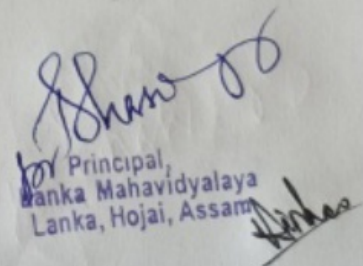 for Principal,
Lanka Mahavidyalaya
Lanka, Hojai, Assam